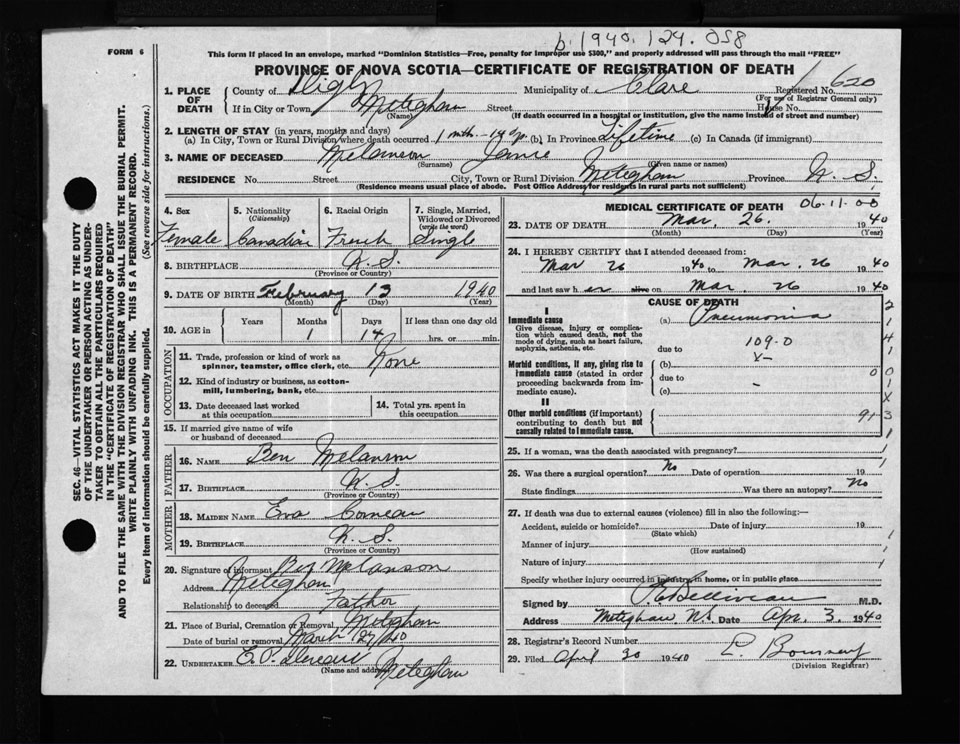 b. 1940. 124. 058
FORM 6
This form if placed in an envelope, marked "Dominion Statistics—Free, penalty for improper use $300," and properly addressed will pass through the mail "FREE"
PROVINCE OF NOVA SCOTIA—CERTIFICATE OF REGISTRATION OF DEATH
1. PLACE OF DEATH
County of Digby Municipality of Clare Registered No. 620
(For use of Registrar General only)
If in City or Town Meteghan Street House No.
(Name) (If death occurred in a hospital or institution, give the name instead of street and number)
2. LENGTH OF STAY (in years, months and days)
(a) In City, Town or Rural Division where death occurred 1 mth. - 14 dys. (b) In Province Lifetime (c) In Canada (if immigrant)
3. NAME OF DECEASED Melanson
(Surname) (Given name or names)
RESIDENCE No. Street City, Town or Rural Division Meteghan Province N. S.
(Residence means usual place of abode. Post Office Address for residents in rural parts not sufficient)
4. Sex Female
5. Nationality (Citizenship) Canadian
6. Racial Origin French
7. Single, Married, Widowed or Divorced (write the word) Single
8. BIRTHPLACE N. S.
(Province or Country)
9. DATE OF BIRTH February 13 1940
(Month) (Day) (Year)
10. AGE in Years Months Days If less than one day old
1 14 hrs. or min.
OCCUPATION
11. Trade, profession or kind of work as spinner, teamster, office clerk, etc. None
12. Kind of industry or business, as cotton-mill, lumbering, bank, etc.
13. Date deceased last worked at this occupation
14. Total yrs. spent in this occupation
15. If married give name of wife or husband of deceased
FATHER
16. NAME Ben Melanson
17. BIRTHPLACE N. S.
(Province or Country)
MOTHER
18. MAIDEN NAME Eva Comeau
19. BIRTHPLACE N. S.
(Province or Country)
20. Signature of informant Ben Melanson
Address Meteghan
Relationship to deceased Father
21. Place of Burial, Cremation or Removal Meteghan
Date of burial or removal March 27/40
22. UNDERTAKER E. P.
(Name and address) Meteghan
MEDICAL CERTIFICATE OF DEATH 06-11-00
23. DATE OF DEATH Mar. 26. 1940
(Month) (Day) (Year)
24. I HEREBY CERTIFY that I attended deceased from:
Mar 26 1940 to Mar. 26 1940
and last saw her alive on Mar. 26 1940
CAUSE OF DEATH
I
Immediate cause
Give disease, injury or complication which caused death, not the mode of dying, such as heart failure, asphyxia, asthenia, etc.
(a) Pneumonia
due to 109-0
X-
Morbid conditions, if any, giving rise to immediate cause (stated in order proceeding backwards from immediate cause).
(b)
due to
(c)
II
Other morbid conditions (if important) contributing to death but not causally related to immediate cause.
91
25. If a woman, was the death associated with pregnancy?
26. Was there a surgical operation? No Date of operation 19
State findings Was there an autopsy? No
27. If death was due to external causes (violence) fill in also the following:—
Accident, suicide or homicide? Date of injury 19
(State which)
Manner of injury
(How sustained)
Nature of injury
Specify whether injury occurred in industry, in home, or in public place
Signed by Belliveau M.D.
Address Meteghan N.S. Date Apr. 3. 1940
28. Registrar's Record Number
29. Filed April 30 1940
(Division Registrar)
SEC. 46—VITAL STATISTICS ACT MAKES IT THE DUTY
OF THE UNDERTAKER OR PERSON ACTING AS UNDER-
TAKER TO OBTAIN ALL THE PARTICULARS REQUIRED
IN THE "CERTIFICATE OF REGISTRATION OF DEATH"
AND TO FILE THE SAME WITH THE DIVISION REGISTRAR WHO SHALL ISSUE THE BURIAL PERMIT.
WRITE PLAINLY WITH UNFADING INK. THIS IS A PERMANENT RECORD.
Every item of information should be carefully supplied. (See reverse side for instructions.)